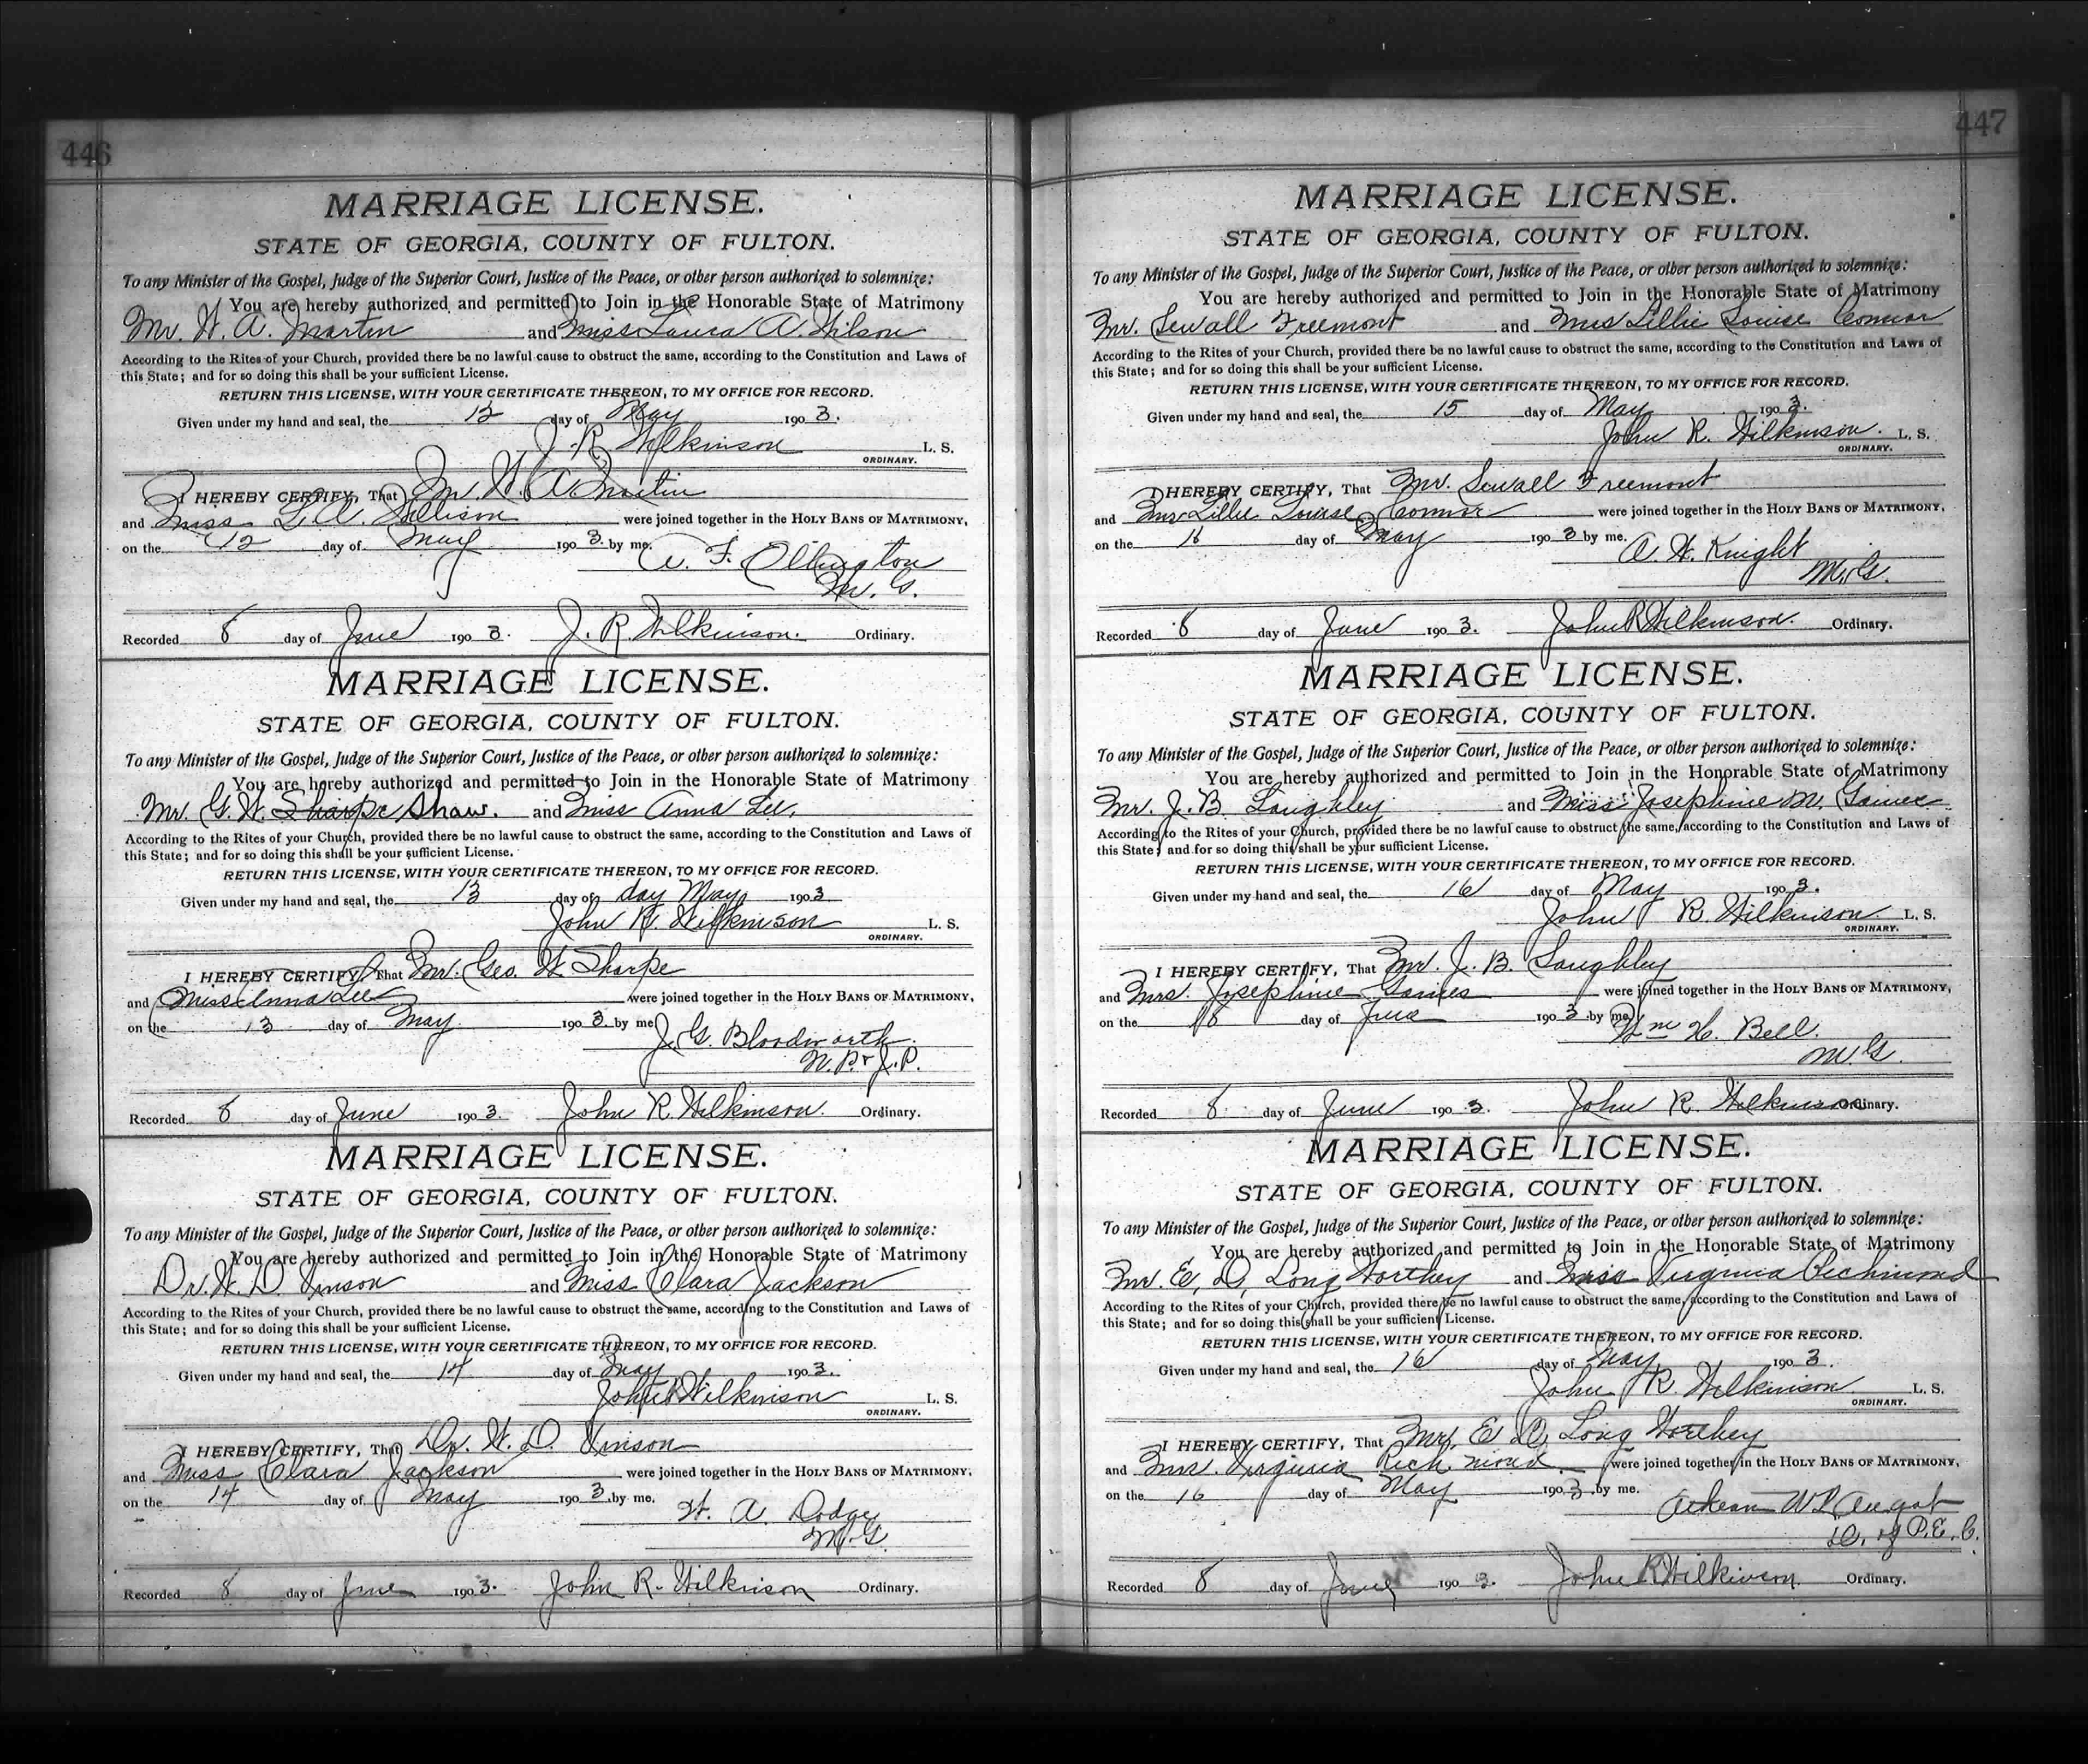 446
MARRIAGE LICENSE.
STATE OF GEORGIA, COUNTY OF FULTON.
To any Minister of the Gospel, Judge of the Superior Court, Justice of the Peace, or other person authorized to solemnize:
You are hereby authorized and permitted to Join in the Honorable State of Matrimony
Mr. W. A. Martin and Miss A. Wilson
According to the Rites of your Church, provided there be no lawful cause to obstruct the same, according to the Constitution and Laws of
this State; and for so doing this shall be your sufficient License.
RETURN THIS LICENSE, WITH YOUR CERTIFICATE THEREON, TO MY OFFICE FOR RECORD.
Given under my hand and seal, the day of May 1903.
J. R. Wilkinson L. S.
ORDINARY.
I HEREBY CERTIFY, That Mr. W. A. Martin
and Miss L. A. were joined together in the HOLY BANS OF MATRIMONY,
on the 12 day of May 1903 by me.
A. F. Ellington
M. G.
Recorded 8 day of June 1903. J. R. Wilkinson. Ordinary.
MARRIAGE LICENSE.
STATE OF GEORGIA, COUNTY OF FULTON.
To any Minister of the Gospel, Judge of the Superior Court, Justice of the Peace, or other person authorized to solemnize:
You are hereby authorized and permitted to Join in the Honorable State of Matrimony
Mr. G. W. Sharpe Shaw. and Miss Anna Lee.
According to the Rites of your Church, provided there be no lawful cause to obstruct the same, according to the Constitution and Laws of
this State; and for so doing this shall be your sufficient License.
RETURN THIS LICENSE, WITH YOUR CERTIFICATE THEREON, TO MY OFFICE FOR RECORD.
Given under my hand and seal, the 13 day of day May 1903
John R. Wilkinson L. S.
ORDINARY.
I HEREBY CERTIFY, That Mr. Geo. W Sharpe
and Miss Anna Lee were joined together in the HOLY BANS OF MATRIMONY,
on the 13 day of May 1903 by me
J. G. Bloodworth.
N. P. & J. P.
Recorded 8 day of June 1903. John R. Wilkinson. Ordinary.
MARRIAGE LICENSE.
STATE OF GEORGIA, COUNTY OF FULTON.
To any Minister of the Gospel, Judge of the Superior Court, Justice of the Peace, or other person authorized to solemnize:
You are hereby authorized and permitted to Join in the Honorable State of Matrimony
Dr. W. D. Vinson and Miss Clara Jackson
According to the Rites of your Church, provided there be no lawful cause to obstruct the same, according to the Constitution and Laws of
this State; and for so doing this shall be your sufficient License.
RETURN THIS LICENSE, WITH YOUR CERTIFICATE THEREON, TO MY OFFICE FOR RECORD.
Given under my hand and seal, the 14 day of May 1903.
John R Wilkinson L. S.
ORDINARY.
I HEREBY CERTIFY, That Dr. W. D. Vinson
and Miss Clara Jackson were joined together in the HOLY BANS OF MATRIMONY.
on the 14 day of May 1903 by me.
W. A. Dodge
M. G.
Recorded 8 day of June 1903. John R. Wilkinson Ordinary.
447
MARRIAGE LICENSE.
STATE OF GEORGIA, COUNTY OF FULTON.
To any Minister of the Gospel, Judge of the Superior Court, Justice of the Peace, or other person authorized to solemnize:
You are hereby authorized and permitted to Join in the Honorable State of Matrimony
Mr. Sewall Freemont and Mrs Lillie Louise Connor
According to the Rites of your Church, provided there be no lawful cause to obstruct the same, according to the Constitution and Laws of
this State; and for so doing this shall be your sufficient License.
RETURN THIS LICENSE, WITH YOUR CERTIFICATE THEREON, TO MY OFFICE FOR RECORD.
Given under my hand and seal, the 15 day of May 1903.
John R. Wilkinson. L. S.
ORDINARY.
I HEREBY CERTIFY, That Mr. Sewall Freemont
and Mrs Lillie Louise Connor were joined together in the HOLY BANS OF MATRIMONY,
on the 16 day of May 1903 by me.
A. W. Knight
M. G.
Recorded 8 day of June 1903. John R Wilkinson. Ordinary.
MARRIAGE LICENSE.
STATE OF GEORGIA, COUNTY OF FULTON.
To any Minister of the Gospel, Judge of the Superior Court, Justice of the Peace, or other person authorized to solemnize:
You are hereby authorized and permitted to Join in the Honorable State of Matrimony
Mr. J. B. Loughley and Miss Josephine M. Gaines
According to the Rites of your Church, provided there be no lawful cause to obstruct the same, according to the Constitution and Laws of
this State; and for so doing this shall be your sufficient License.
RETURN THIS LICENSE, WITH YOUR CERTIFICATE THEREON, TO MY OFFICE FOR RECORD.
Given under my hand and seal, the 16 day of May 1903.
John R. Wilkinson L. S.
ORDINARY.
I HEREBY CERTIFY, That Mr. J. B. Loughley
and Mrs. Josephine Gaines were joined together in the HOLY BANS OF MATRIMONY,
on the 18 day of June 1903 by me
Wm H. Bell.
M. G.
Recorded 8 day of June 1903. John R. Wilkinson Ordinary.
MARRIAGE LICENSE.
STATE OF GEORGIA, COUNTY OF FULTON.
To any Minister of the Gospel, Judge of the Superior Court, Justice of the Peace, or other person authorized to solemnize:
You are hereby authorized and permitted to Join in the Honorable State of Matrimony
Mr. E. D. Long Worthey and Miss Virginia Richmond
According to the Rites of your Church, provided there be no lawful cause to obstruct the same, according to the Constitution and Laws of
this State; and for so doing this shall be your sufficient License.
RETURN THIS LICENSE, WITH YOUR CERTIFICATE THEREON, TO MY OFFICE FOR RECORD.
Given under my hand and seal, the 16 day of May 1903.
John R. Wilkinson L. S.
ORDINARY.
I HEREBY CERTIFY, That Mr. E. D. Long Worthey
and Mrs. Virginia Richmond were joined together in the HOLY BANS OF MATRIMONY,
on the 16 day of May 1903 by me.
of P. E. C.
Recorded 8 day of June 1903. John R Wilkinson. Ordinary.